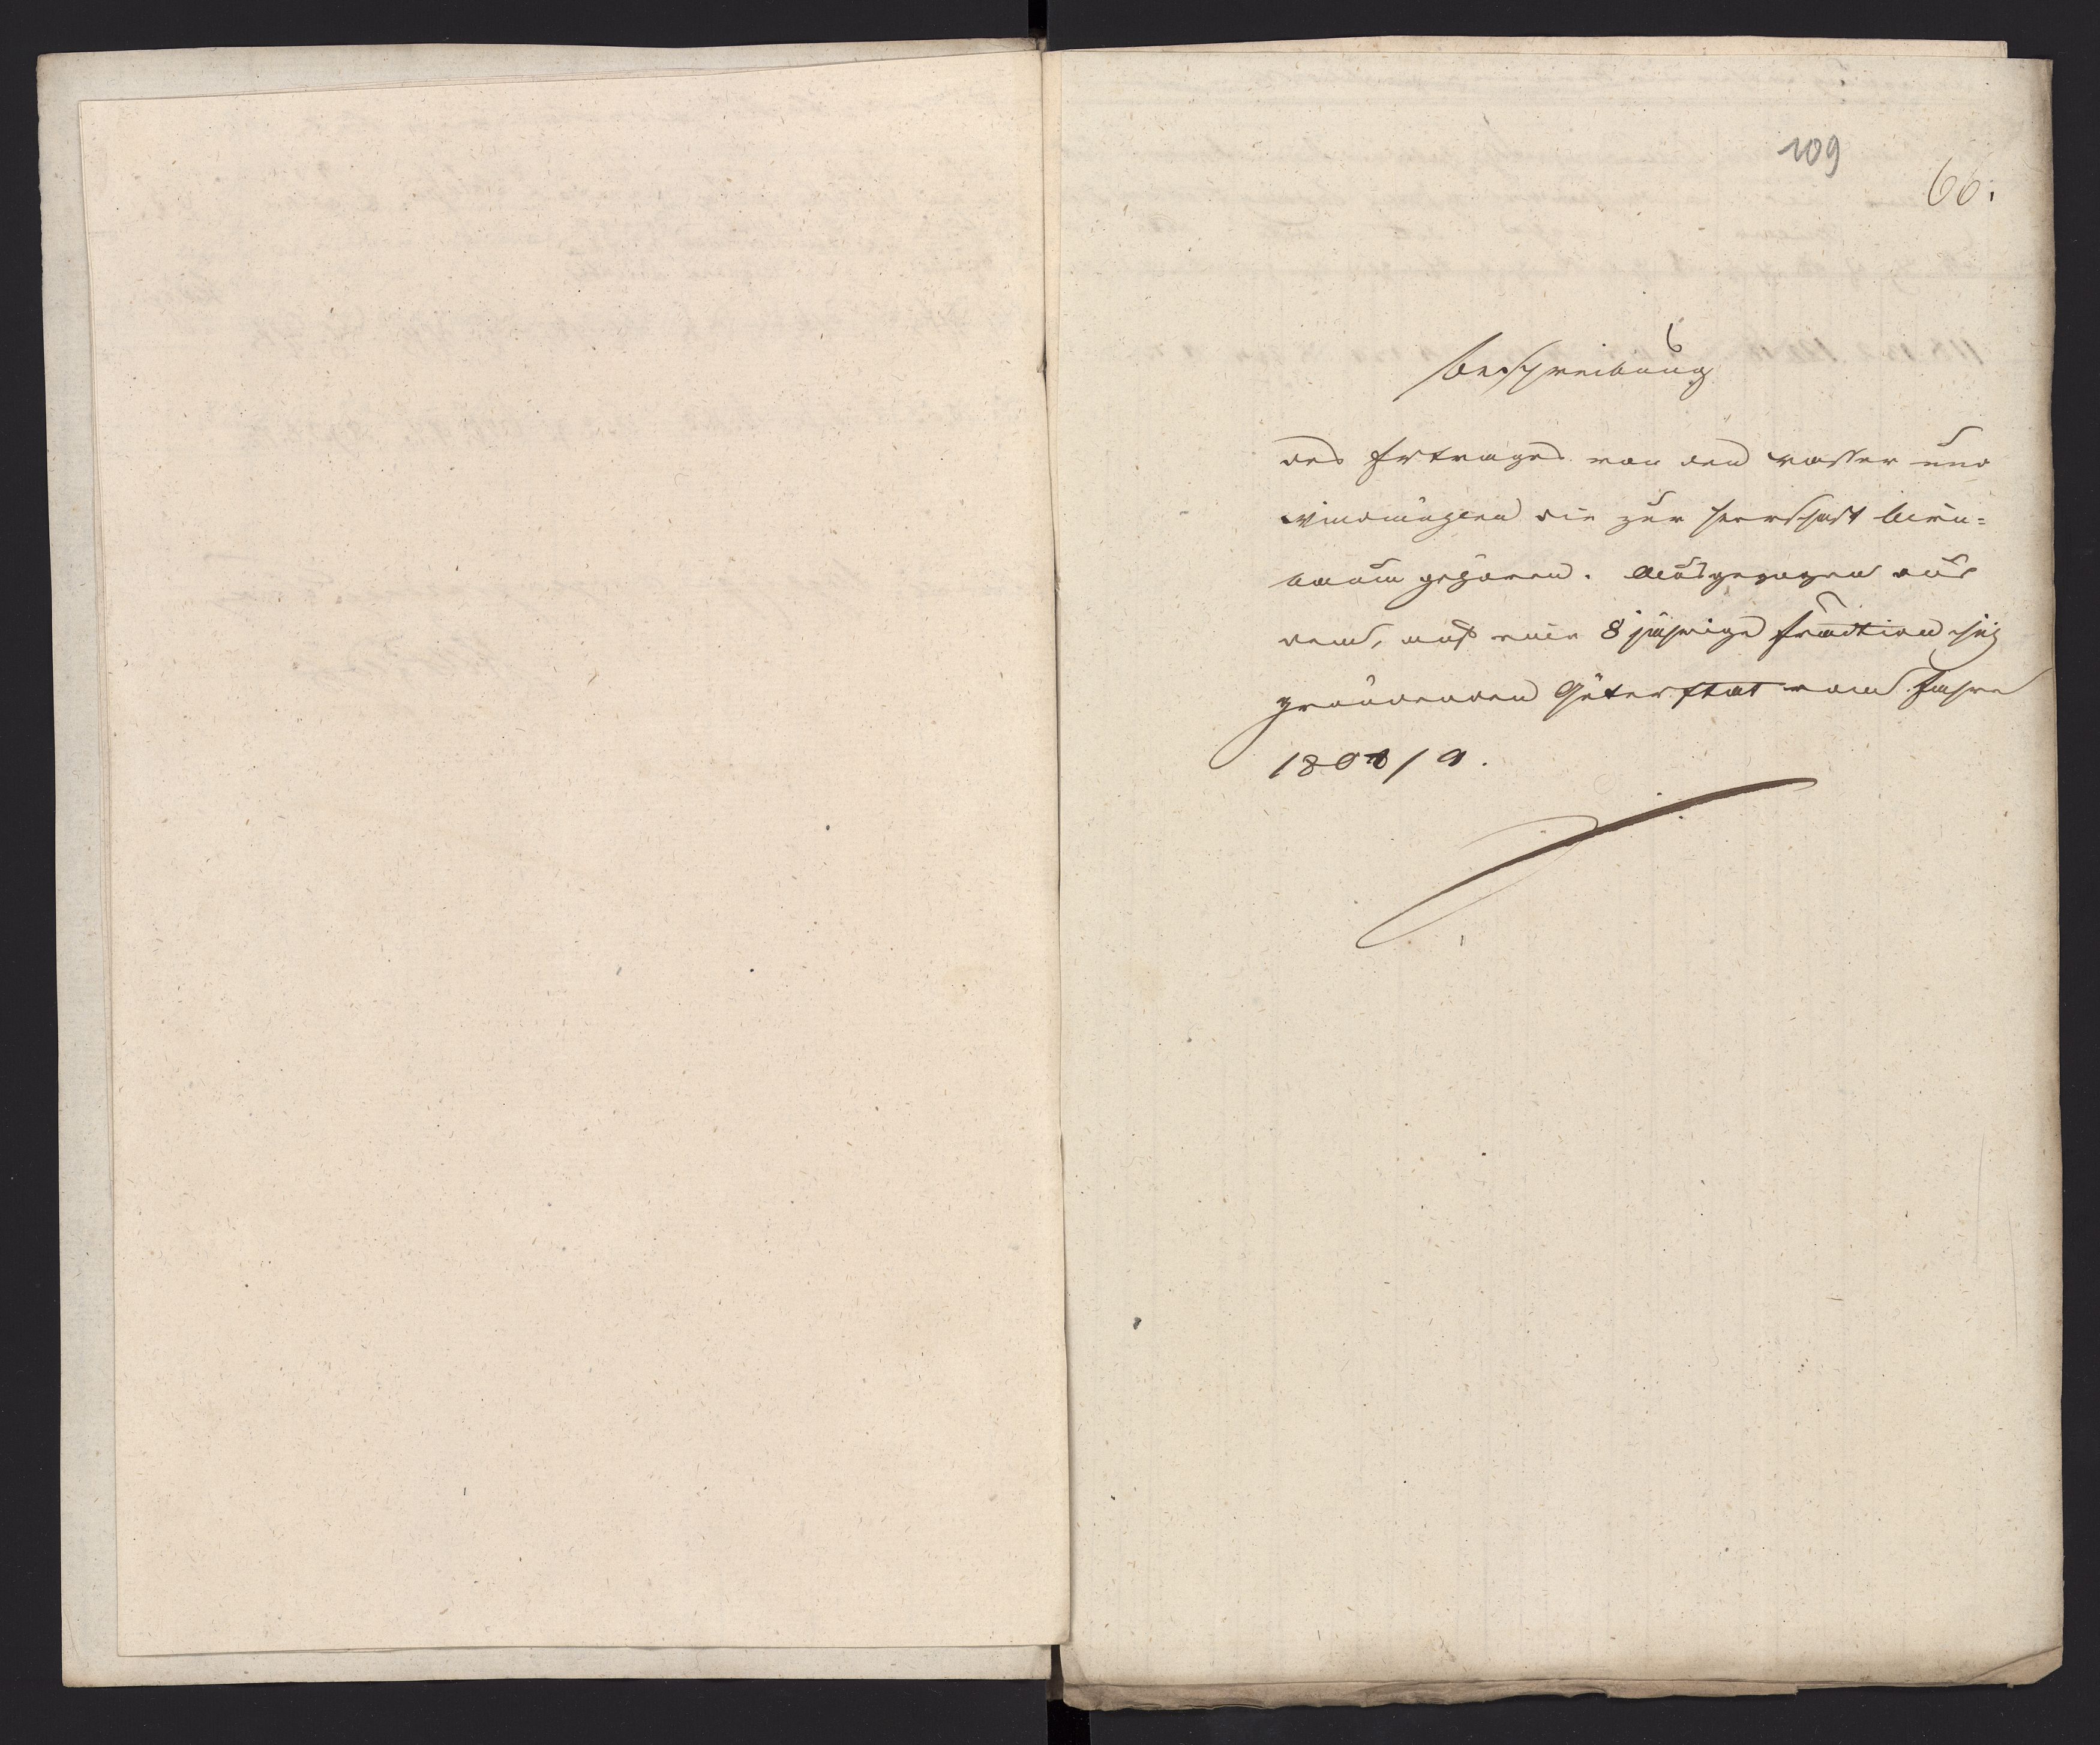 109
66.
Beschreibung
des Ertrages von den Wasser und
Windmühlen die zur Herrschaft Birn=
baum gehören. Ausgezogen aus
dem, auf eine 8 jährige Fraction sich
gründenden Güter Etat vom Jahre
1808/9.